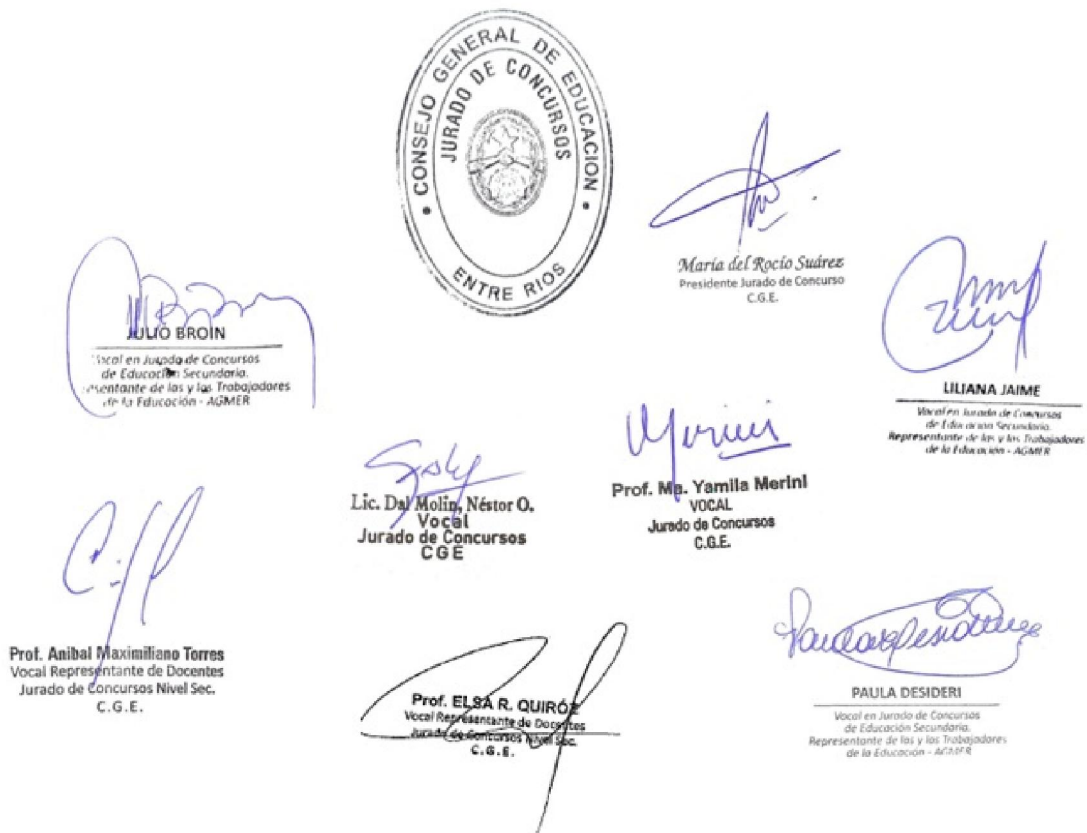 CONSEJO GENERAL DE EDUCACION
JURADO DE CONCURSOS
ENTRE RIOS
María del Rocío Suárez
Presidente Jurado de Concurso
C.G.E.
JULIO BROIN
Vocal en Jurado de Concursos
de Educación Secundaria.
de las y los Trabajadores
de la Educación - AGMER
LILIANA JAIME
Vocal en Jurado de Concursos
de Educación Secundaria.
Representante de las y los Trabajadores
de la Educación - AGMER
Lic. Dal Molin, Néstor O.
Vocal
Jurado de Concursos
CGE
Prof. Ma. Yamila Merini
VOCAL
Jurado de Concursos
C.G.E.
Prof. Anibal Maximiliano Torres
Vocal Representante de Docentes
Jurado de Concursos Nivel Sec.
C.G.E.
Prof. ELSA R. QUIRÓZ
Vocal Representante de Docentes
Jurado de Concursos Nivel Sec.
C.G.E.
PAULA DESIDERI
Vocal en Jurado de Concursos
de Educación Secundaria.
Representante de las y los Trabajadores
de la Educación - AGMER